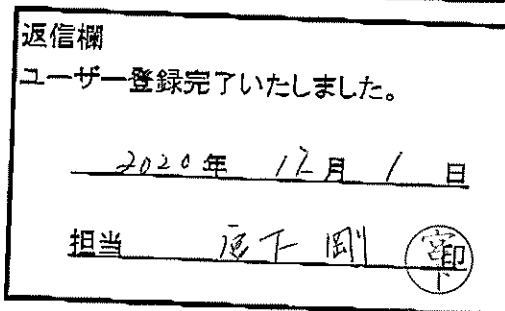 返信欄
ユーザー登録完了いたしました。
2020年 12月 1 日
担当 宮下 剛 宮下 印